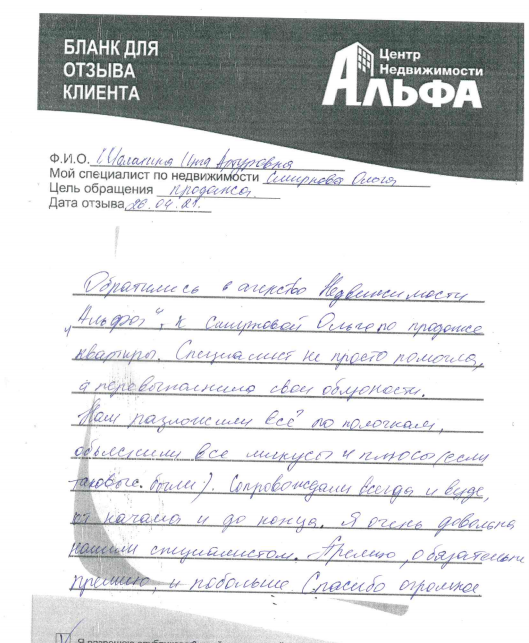 БЛАНК ДЛЯ
ОТЗЫВА
КЛИЕНТА
Центр
Недвижимости
АЛЬФА
Ф.И.О. Инга Артуровна
Мой специалист по недвижимости Смирнова Ольга
Цель обращения продажа
Дата отзыва 26.04.21.
Обратились в агенство Недвижимости
"Альфа", к Смирновой Ольге по продаже
квартиры. Специалист не просто помогла,
а перевыполнила свои обязности.
Нам разложили всё по полочкам,
объяснили все минусы и плюсы (если
таковые были). Сопровождали всегда и везде,
от начала и до конца. Я очень довольна
нашим специалистом. Премию, обязательно
премию, и побольше. Спасибо огромное